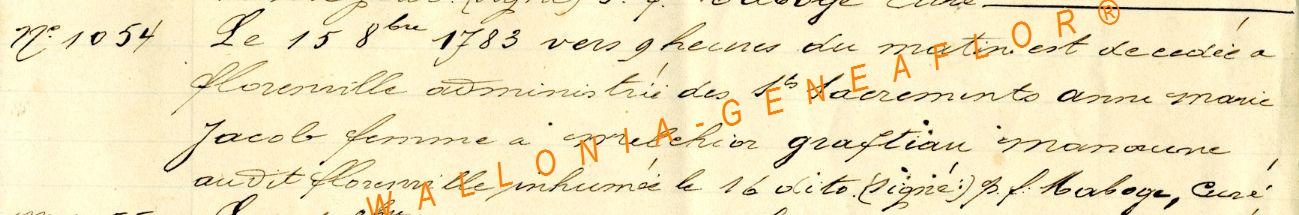 N° 1054 Le 15 8bre 1783 vers 9 heures du matin est decedée a
florenville administrée des Sts Sacrements anne marie
Jacob femme a melchior graftiau manouvré
audit florenville inhumée le 16 dito. (signé:) p. f. Maboge, Curé
WALLONIA-GENEAFLOR®